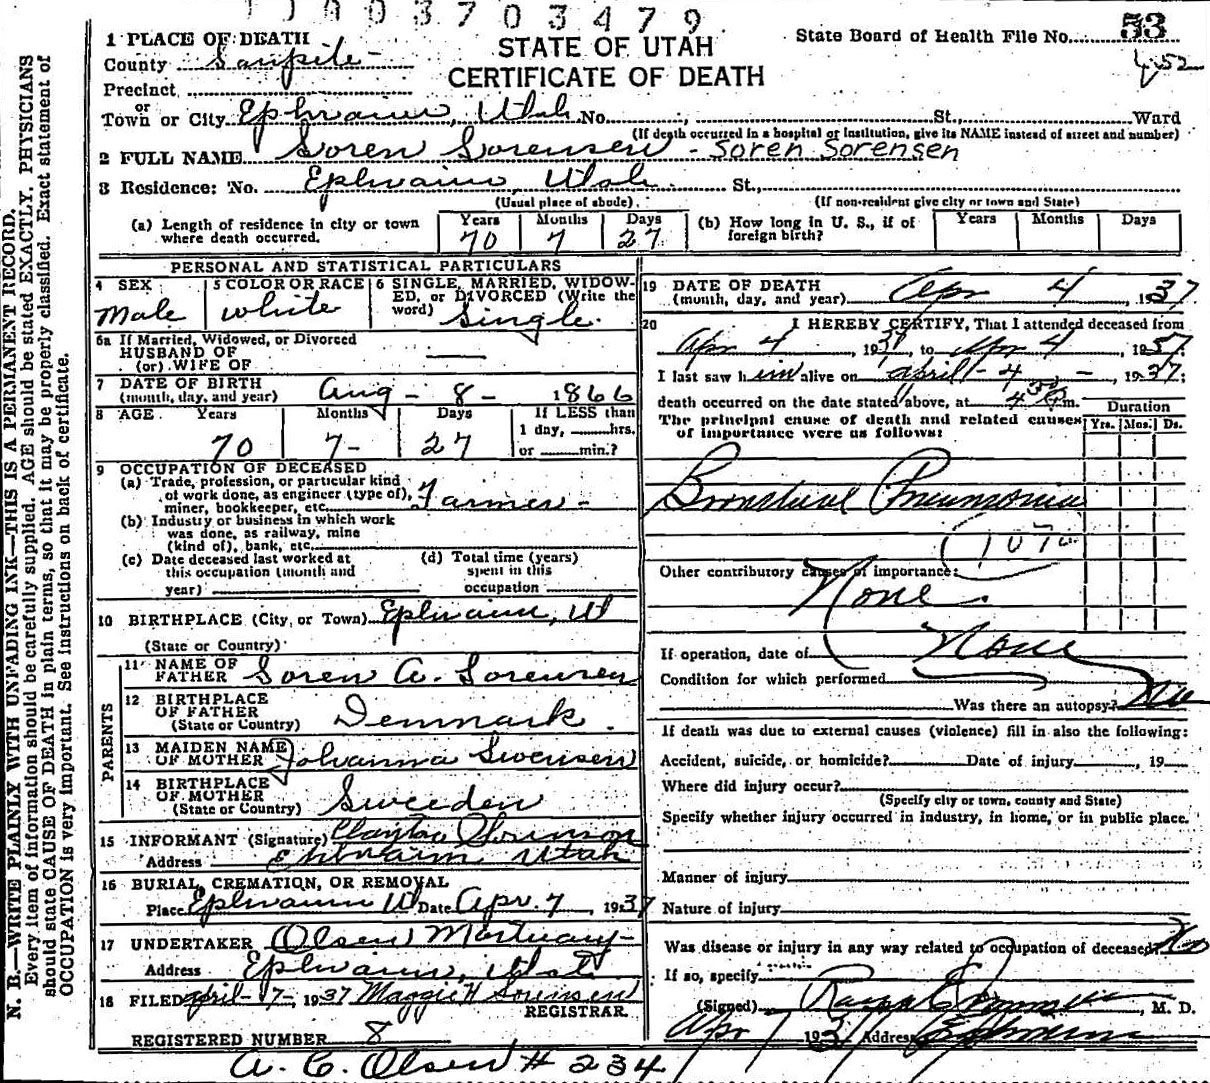 1003703479
1 PLACE OF DEATH
STATE OF UTAH
CERTIFICATE OF DEATH
State Board of Health File No. 53
452
County Sanpete
Precinct
or
Town or City Ephraim, Utah No. , St., Ward
(If death occurred in a hospital or institution, give its NAME instead of street and number)
2 FULL NAME Soren Sorensen - Soren Sorensen
3 Residence: No. Ephraim, Utah. St.,
(Usual place of abode) (If non-resident give city or town and State)
(a) Length of residence in city or town where death occurred. Years 70 Months 7 Days 27
(b) How long in U. S., if of foreign birth? Years Months Days
PERSONAL AND STATISTICAL PARTICULARS
4 SEX Male
5 COLOR OR RACE White
6 SINGLE, MARRIED, WIDOWED, or DIVORCED (Write the word) Single.
6a If Married, Widowed, or Divorced
HUSBAND OF
(or) WIFE OF
7 DATE OF BIRTH
(month, day, and year) Aug - 8 - 1866
8 AGE Years Months Days If LESS than
1 day, hrs.
or min.?
70 7- 27
9 OCCUPATION OF DECEASED
(a) Trade, profession, or particular kind
of work done, as engineer (type of),
miner, bookkeeper, etc. Farmer -
(b) Industry or business in which work
was done, as railway, mine
(kind of), bank, etc.
(c) Date deceased last worked at
this occupation (month and
year)
(d) Total time (years)
spent in this
occupation
10 BIRTHPLACE (City, or Town) Ephraim, Ut
(State or Country)
PARENTS
11 NAME OF
FATHER Soren A. Sorensen
12 BIRTHPLACE
OF FATHER
(State or Country) Denmark.
13 MAIDEN NAME
OF MOTHER Johanna Swensen
14 BIRTHPLACE
OF MOTHER
(State or Country) Sweeden
15 INFORMANT (Signature) Clayton Sorenson
Address Ephraim Utah
16 BURIAL, CREMATION, OR REMOVAL
Place Ephraim Ut Date Apr. 7, 1937
17 UNDERTAKER Olsen Mortuary
Address Ephraim, Utah.
18 FILED April - 7 -, 1937 Maggie H Sorensen
REGISTRAR.
REGISTERED NUMBER 8
A. C. Olsen # 234
19 DATE OF DEATH
(month, day, and year) Apr 4, 1937
20 I HEREBY CERTIFY, That I attended deceased from
Apr 4, 1937, to Apr 4, 1937.
I last saw him alive on April - 4, -, 1937;
death occurred on the date stated above, at m.
The principal cause of death and related causes
of importance were as follows:
Duration
Yrs. Mos. Ds.
Bronchial Pneumonia
107a
Other contributory causes of importance:
None.
If operation, date of None
Condition for which performed
Was there an autopsy? No
If death was due to external causes (violence) fill in also the following:
Accident, suicide, or homicide? Date of injury , 19
Where did injury occur?
(Specify city or town, county and State)
Specify whether injury occurred in industry, in home, or in public place.
Manner of injury
Nature of injury
Was disease or injury in any way related to occupation of deceased? No
If so, specify
(Signed) , M. D.
Apr 7 1937 Address Ephraim
N. B.—WRITE PLAINLY WITH UNFADING INK—THIS IS A PERMANENT RECORD.
Every item of information should be carefully supplied. AGE should be stated EXACTLY. PHYSICIANS
should state CAUSE OF DEATH in plain terms, so that it may be properly classified. Exact statement of
OCCUPATION is very important. See instructions on back of certificate.